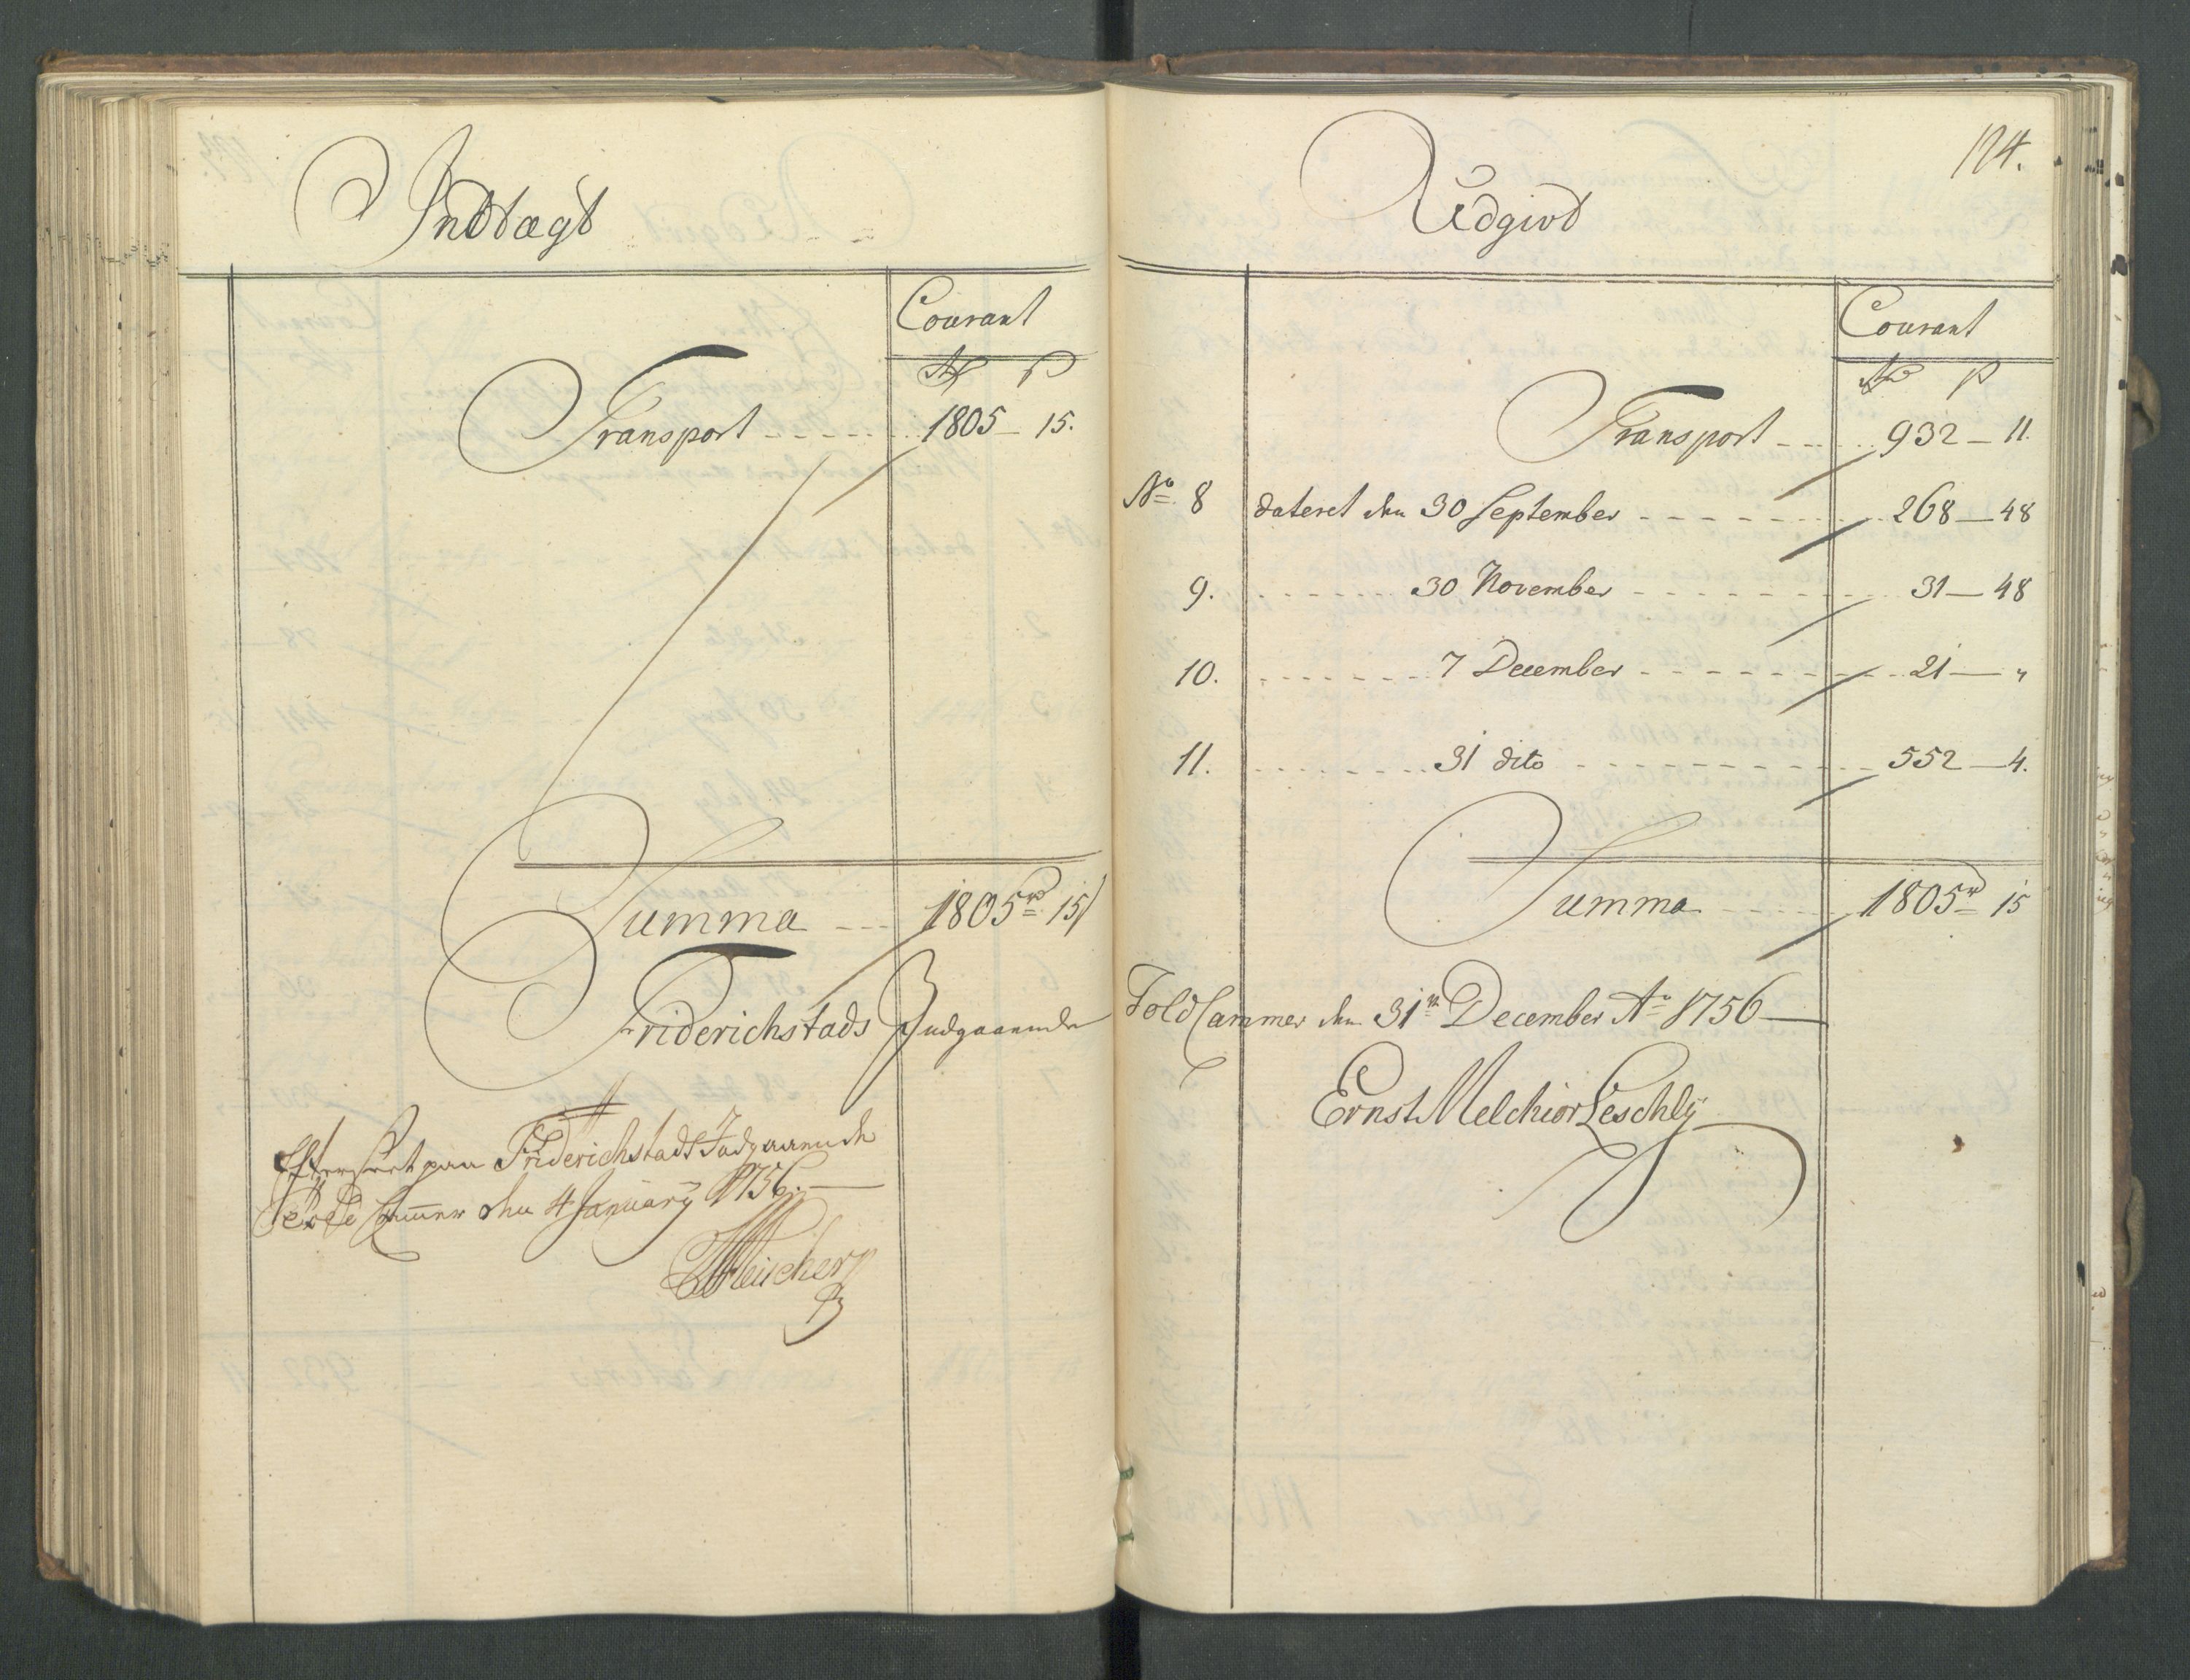 Indtægt
Courant
Rd ß
Transport 1805 – 15.
Summa 1805 rd 15 ß
Friderichstads Indgaaende
Efterseet paa Friderichstads Indgaaende
Told Cammer den 4 January 1756.
124.
Udgivt
Courant
Rd ß
Transport 932 – 11.
No. 8 dateret den 30 September 268 – 48
9. 30 November 31 – 48
10. 7 December 21 – "
11. 31 dito 552 – 4.
Summa 1805 rd 15
Told Cammer den 31te December Ao 1756
Ernst Melchior Leschly